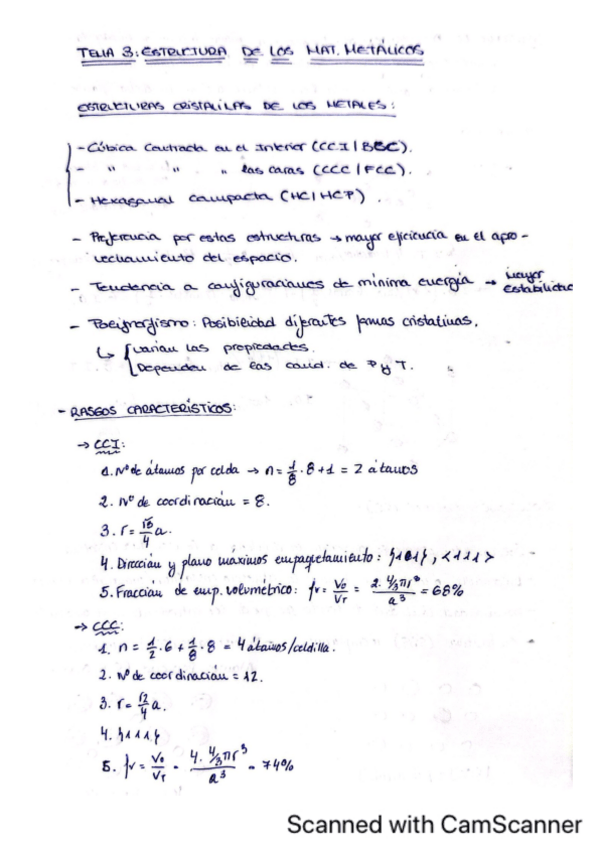 TEMA 3: ESTRUCTURA DE LOS MAT. METÁLICOS
ESTRUCTURAS CRISTALINAS DE LOS METALES:
- Cúbica Centrada en el Interior (CCI / BCC).
- " " " las caras (CCC / FCC).
- Hexagonal compacta (HC / HCP).
- Preferencia por estas estructuras → mayor eficiencia en el apro-
vechamiento del espacio.
- Tendencia a configuraciones de mínima energía → mayor
estabilidad
- Polimorfismo: Posibilidad diferentes formas cristalinas.
↳ varían las propiedades.
Dependen de las cond. de P y T.
- RASGOS CARACTERÍSTICOS:
→ CCI:
1. Nº de átomos por celda → n = 1/8 · 8 + 1 = 2 átomos
2. Nº de coordinación = 8.
3. r = √3/4 a.
4. Dirección y plano máximos empaquetamiento: {101}, <111>
5. Fracción de emp. volumétrico: fv = Vo/VT = 2 · 4/3 πr³ / a³ = 68%
→ CCC:
1. n = 1/2 · 6 + 1/8 · 8 = 4 átomos/celdilla.
2. Nº de coordinación = 12.
3. r = √2/4 a.
4. {111}
5. fv = Vo/VT = 4 · 4/3 πr³ / a³ = 74%
Scanned with CamScanner